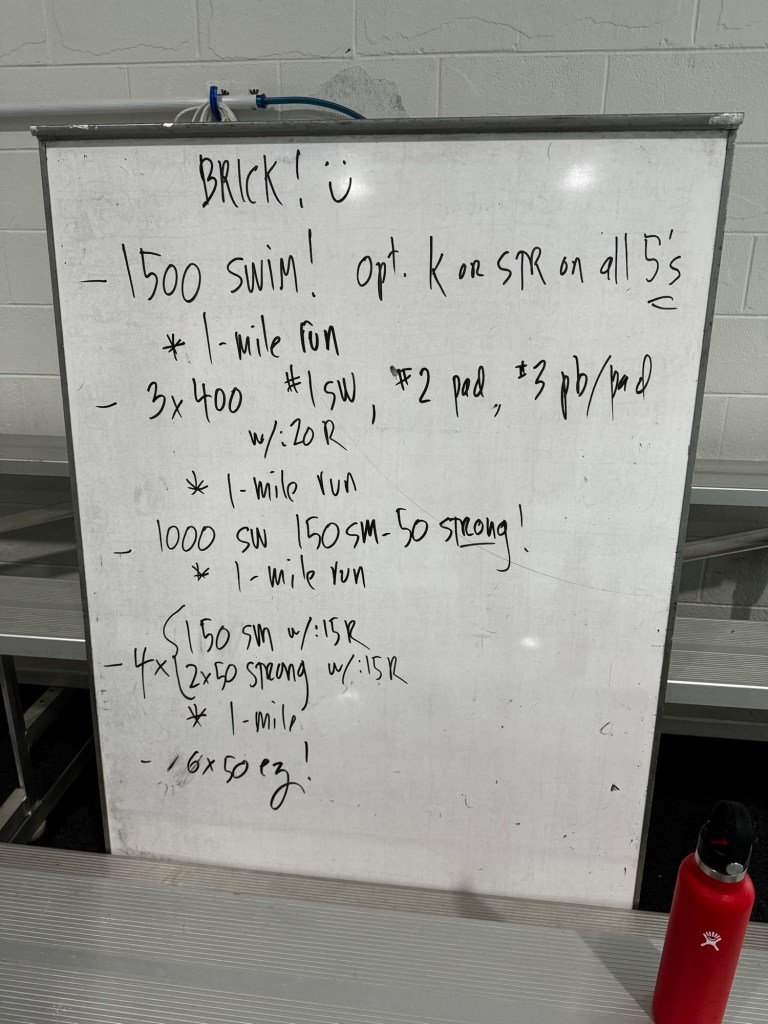 BRICK! ü
- 1500 SWIM! Opt. K or STR on all 5's
* 1-mile run
- 3x400 #1 SW, #2 pad, #3 pb/pad
w/:20 R
* 1-mile run
- 1000 SW 150 SM-50 strong!
* 1-mile run
- 4x { 150 SM w/:15R
2x50 strong w/:15R
* 1-mile
- 6x50 ez!